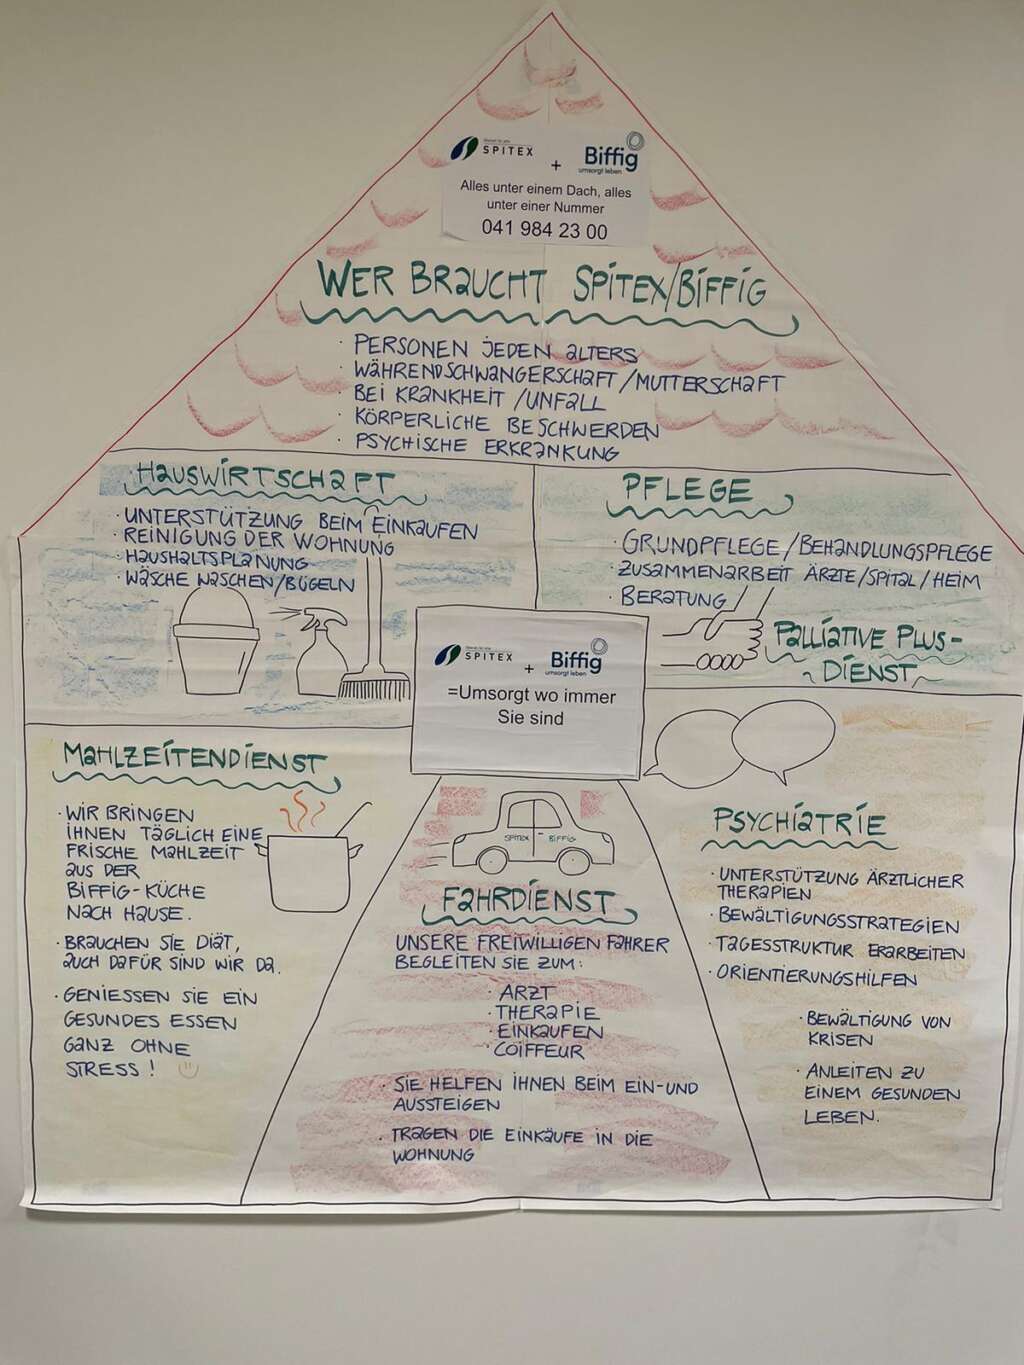 SPITEX + Biffig
umsorgt leben
Alles unter einem Dach, alles
unter einer Nummer
041 984 23 00
WER BRAUCHT SPITEX/BIFFIG
· PERSONEN JEDEN ALTERS
· WÄHRENDSCHWANGERSCHAFT/MUTTERSCHAFT
· BEI KRANKHEIT/UNFALL
· KÖRPERLICHE BESCHWERDEN
· PSYCHISCHE ERKRANKUNG
HAUSWIRTSCHAFT
· UNTERSTÜTZUNG BEIM EINKAUFEN
· REINIGUNG DER WOHNUNG
· HAUSHALTSPLANUNG
· WÄSCHE WASCHEN/BÜGELN
PFLEGE
· GRUNDPFLEGE/BEHANDLUNGSPFLEGE
· ZUSAMMENARBEIT ÄRZTE/SPITAL/HEIM
· BERATUNG
PALLIATIVE PLUS-
DIENST
SPITEX + Biffig
umsorgt leben
=Umsorgt wo immer
Sie sind
MAHLZEITENDIENST
· WIR BRINGEN
IHNEN TÄGLICH EINE
FRISCHE MAHLZEIT
AUS DER
BIFFIG-KÜCHE
NACH HAUSE.
· BRAUCHEN SIE DIÄT,
AUCH DAFÜR SIND WIR DA.
· GENIESSEN SIE EIN
GESUNDES ESSEN
GANZ OHNE
STRESS!
SPITEX BIFFIG
FAHRDIENST
UNSERE FREIWILLIGEN FAHRER
BEGLEITEN SIE ZUM:
· ARZT
· THERAPIE
· EINKAUFEN
· COIFFEUR
· SIE HELFEN IHNEN BEIM EIN-UND
AUSSTEIGEN
· TRAGEN DIE EINKÄUFE IN DIE
WOHNUNG
PSYCHIATRIE
· UNTERSTÜTZUNG ÄRZTLICHER
THERAPIEN
· BEWÄLTIGUNGSSTRATEGIEN
· TAGESSTRUKTUR ERARBEITEN
· ORIENTIERUNGSHILFEN
· BEWÄLTIGUNG VON
KRISEN
· ANLEITEN ZU
EINEM GESUNDEN
LEBEN.